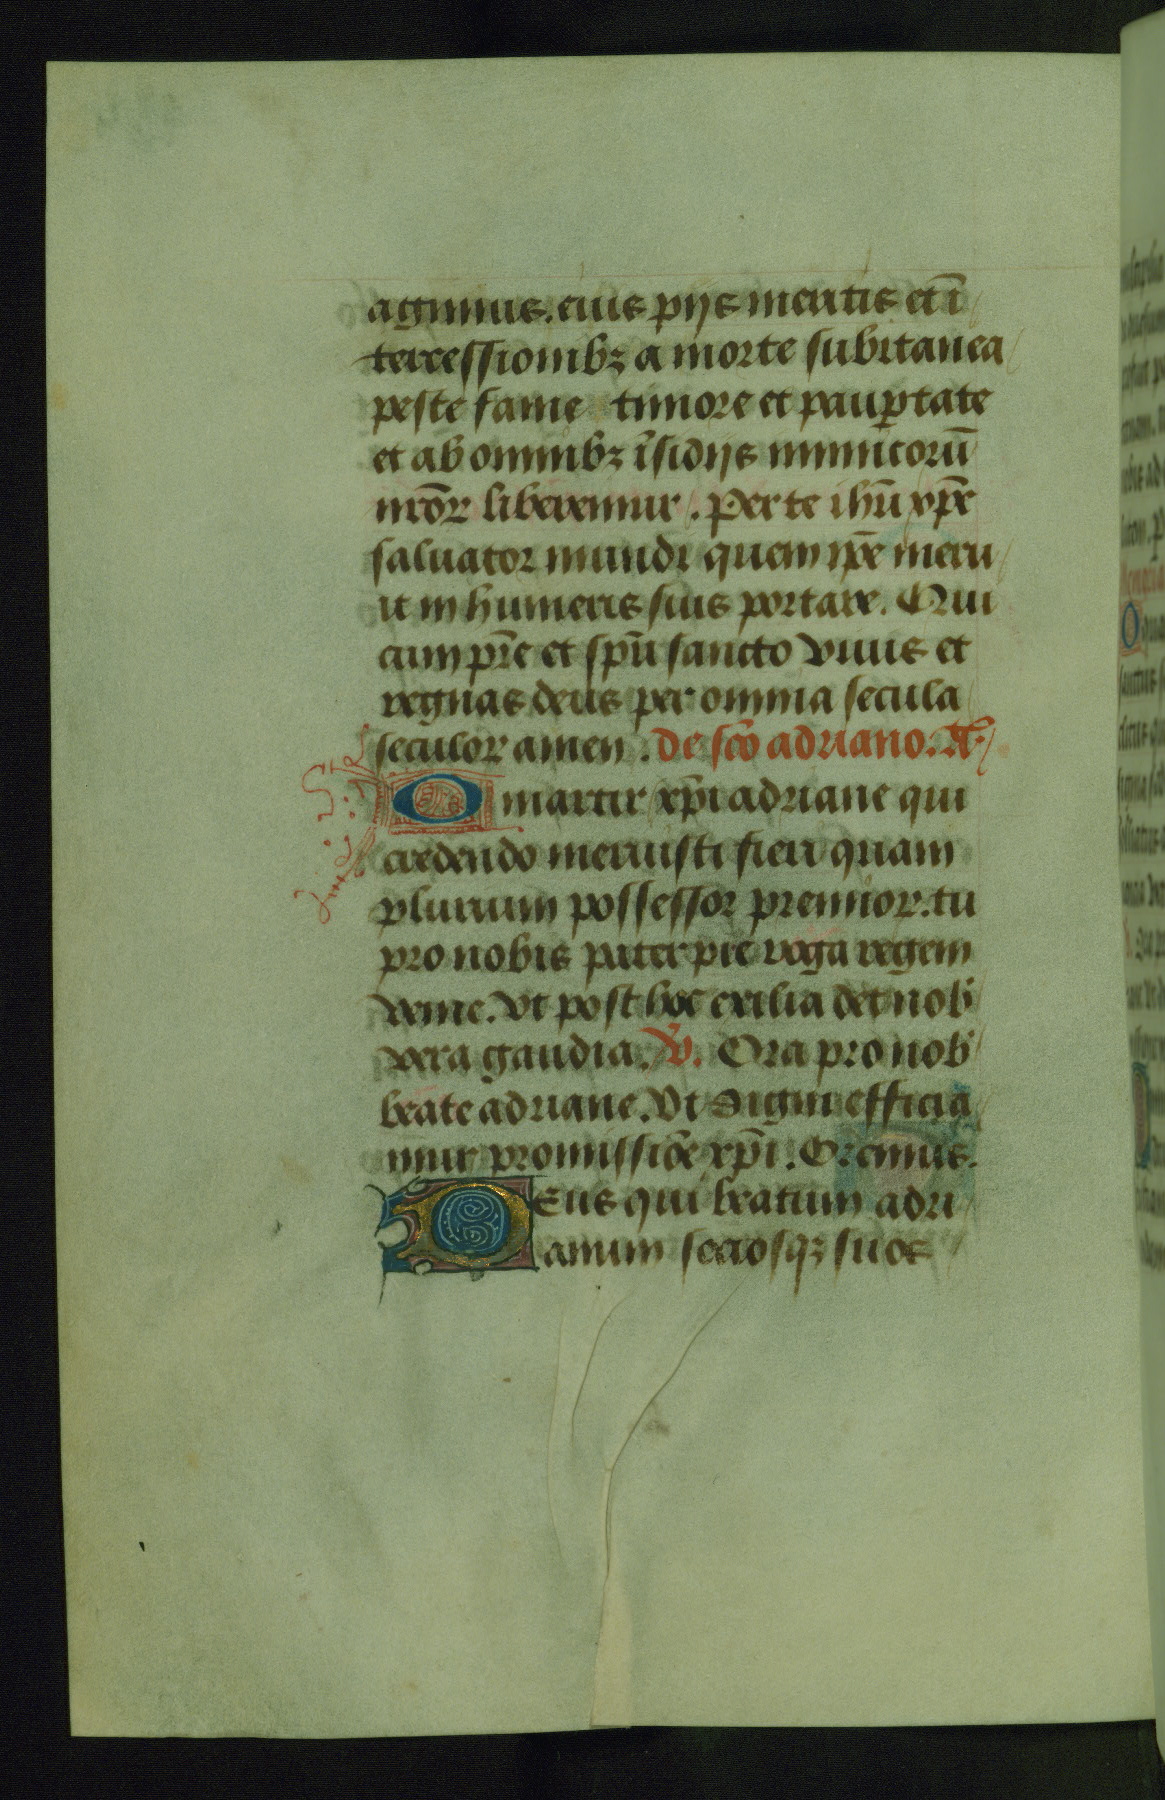 agimus. eius pijs meritis et ĩ
tercessionibꝫ a morte subitanea
peste fame timore et paup̱tate
et ab omnibꝫ ĩsidijs inimicorũ
nr̃oꝝ liberemur. Per te ihũ xp̃e
saluator mundi quem ip̃e meru
it in humeris suis portare. Qui
cum pr̃e et sp̃u sancto viuis et
regnas deus per omnia secula
seculoꝝ amen. de sc̃o adriano. A͞.
O martir xp̃i adriane qui
credendo meruisti fieri quam
plurium possessor premioꝝ. tu
pro nobis pater pie roga regem
venie. vt post hoc exilia det nob̾
vera gaudia. V̾. Ora pro nob̾
beate adriane. Vt digni efficia
mur promissiõe xp̃i. Oremus.
DEus qui beatum adri
anum sociosqꝫ suos